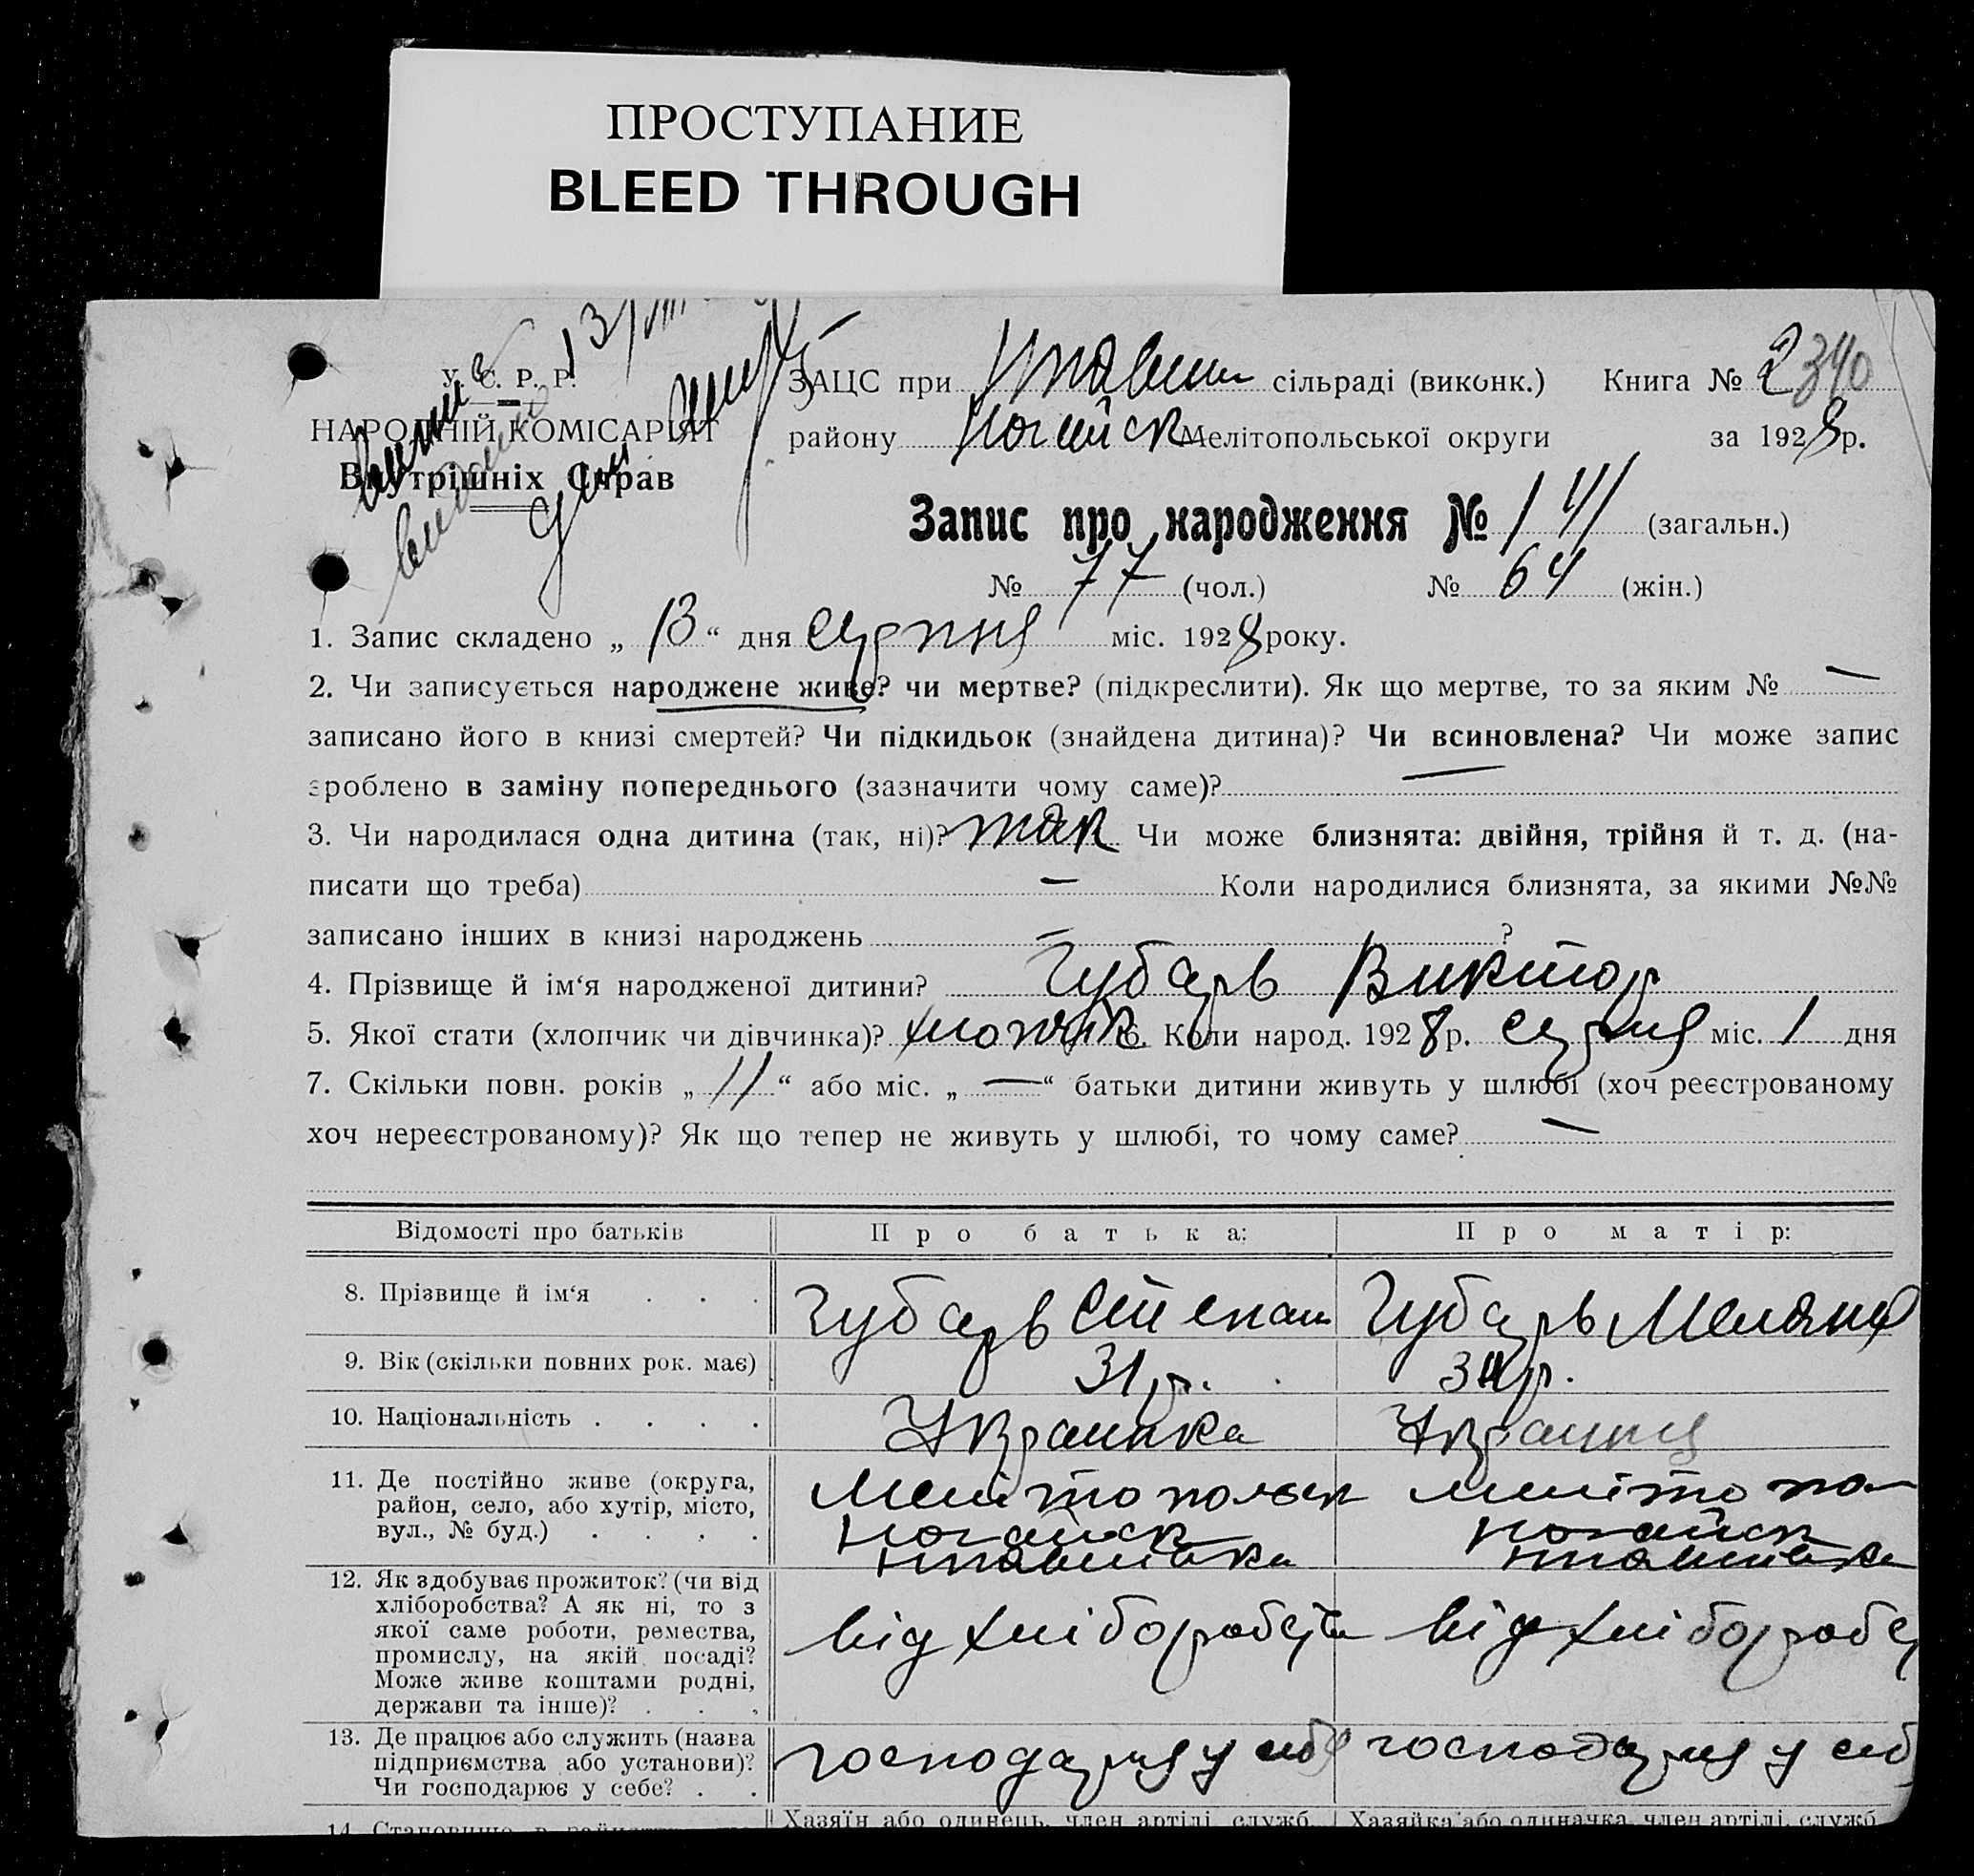 ПРОСТУПАНИЕ
BLEED THROUGH
У. С. Р. Р.
НАРОДНІЙ КОМІСАРІЯТ
Внутрішніх Справ
13/VIII
ЗАЦС при сільраді (виконк.) Книга № 2 340
району Ногайск Мелітопольської округи за 1928 р.
Запис про народження № 141 (загальн.)
№ 77 (чол.) № 64 (жін.)
1. Запис складено „ 13 “ дня серпня міс. 1928 року.
2. Чи записується народжене живе? чи мертве? (підкреслити). Як що мертве, то за яким № —
записано його в книзі смертей? Чи підкидьок (знайдена дитина)? Чи всиновлена? Чи може запис
зроблено в заміну попереднього (зазначити чому саме)? —
3. Чи народилася одна дитина (так, ні)? так Чи може близнята: двійня, трійня й т. д. (на-
писати що треба) — Коли народилися близнята, за якими №№
записано інших в книзі народжень — ?
4. Прізвище й ім‘я народженої дитини? Губарь Виктор
5. Якої стати (хлопчик чи дівчинка)? 6. Коли народ. 1928 р. серпня міс. 1 дня
7. Скільки повн. років „ 11 “ або міс. „ — “ батьки дитини живуть у шлюбі (хоч реєстрованому
хоч нереєстрованому)? Як що тепер не живуть у шлюбі, то чому саме? —
Відомості про батьків Про батька: Про матір:
8. Прізвище й ім‘я . . . Губарь Степан Губарь Меланя
9. Вік (скільки повних рок. має) 31 р. р.
10. Національність . . . . Украинка
11. Де постійно живе (округа,
район, село, або хутір, місто,
вул., № буд.) . . . .
Мелітопольск Мелітопол
Ногайск Ногайск
12. Як здобуває прожиток? (чи від
хліборобства? А як ні, то з
якої саме роботи, ремества,
промислу, на якій посаді?
Може живе коштами родні,
держави та інше)? . . .
від від
13. Де працює або служить (назва
підприємства або установи)?
Чи господарює у себе? . .
господарця у себ господарця у себ
14. Становище в
Хазяїн або одинець, член артілі, служб. Хазяйка або одиначка, член артілі, служб.